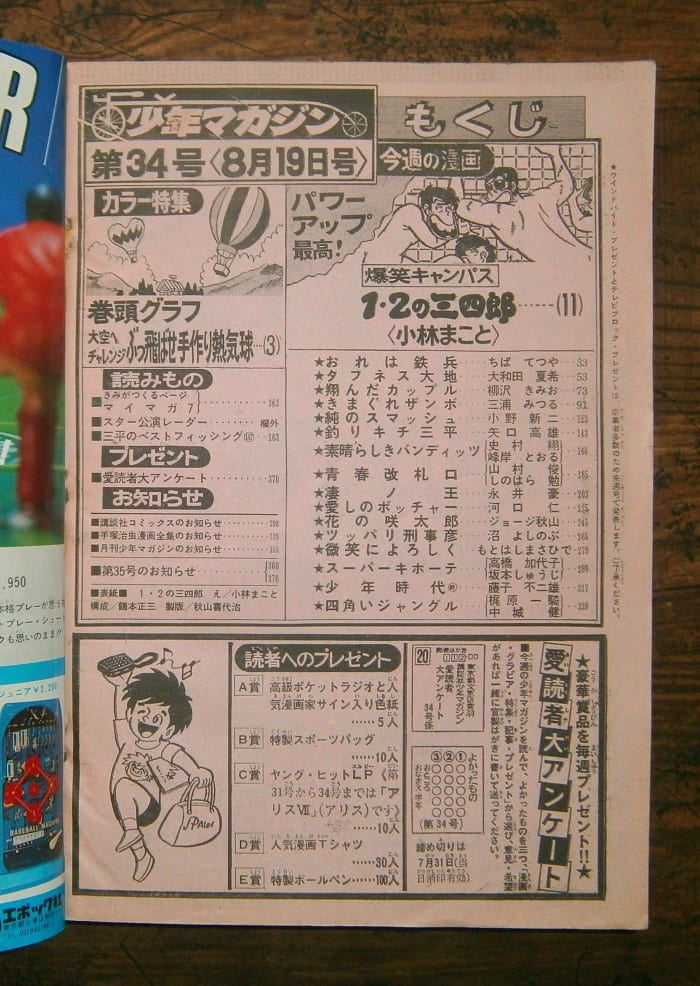 少年マガジン
もくじ
第34号〈8月19日号〉
カラー特集
巻頭グラフ
大空へ
チャレンジ
ぶっ飛ばせ手作り熱気球…(3)
今週の漫画
パワー
アップ
最高!
爆笑キャンパス
1・2の三四郎……(11)
〈小林まこと〉
読みもの
■きみがつくるページ
マイマガ7………363
■スター公演レーダー………欄外
■三平のベストフィッシング………163
プレゼント
■愛読者大アンケート………370
お知らせ
■講談社コミックスのお知らせ
■手塚治虫漫画全集のお知らせ
■月刊少年マガジンのお知らせ
■第35号のお知らせ………360
376
■表紙■ 1・2の三四郎 え/小林まこと
構成/鶴本正三 製版/秋山喜代治
★おれは鉄兵 ちばてつや…33
★タフネス大地 大和田夏希…53
★翔んだカップル 柳沢きみお…73
★きまぐれザンボ 三浦みつる…91
★純のスマッシュ 小野新二…123
★釣りキチ三平 矢口高雄…143
★素晴らしきバンディッツ 史村翔 峰岸とおる…165
★青春改札口 山村俊 しのはら勉…185
★凄ノ王 永井豪…203
★愛しのボッチャー 河口仁…225
★花の咲太郎 ジョージ秋山…245
★ツッパリ刑事彦 沼よしのぶ…265
★微笑によろしく もとはしまさひで…279
★スーパーキホーテ 高橋加代子 坂本しゅうじ…299
★少年時代 藤子不二雄…317
★四角いジャングル 梶原一騎 中城健…339
★ウインドバイド・プレゼントとテレビブロック・プレゼントは、応募者多数のため来週号で発表します。ご了承ください。
読者へのプレゼント
A賞 高級ポケットラジオと人
気漫画家サイン入り色紙
……5人
B賞 特製スポーツバッグ
……10人
C賞 ヤング・ヒットLP《第
31号から34号までは「ア
リスⅦ」(アリス)です》
……10人
D賞 人気漫画Tシャツ
……30人
E賞 特製ボールペン……100人
★豪華賞品を毎週プレゼント!!★
愛読者大アンケート
■今週の少年マガジンを読んで、よかったものを三つ、「漫画
・グラビア・特集・記事・プレゼント」から選び、意見、希望
があれば一緒に官製はがきに書いて送ってください。
20
郵便はがき
112
東京都文京区音羽
講談社少年マガジン
愛読者
大アンケート
34号係
よかったもの
①
②
③
(第34号)
締め切りは
7月31日(当
日消印有効)
R
,950
ジュニア¥2,200
BASEBALL MACHINE
エポック社